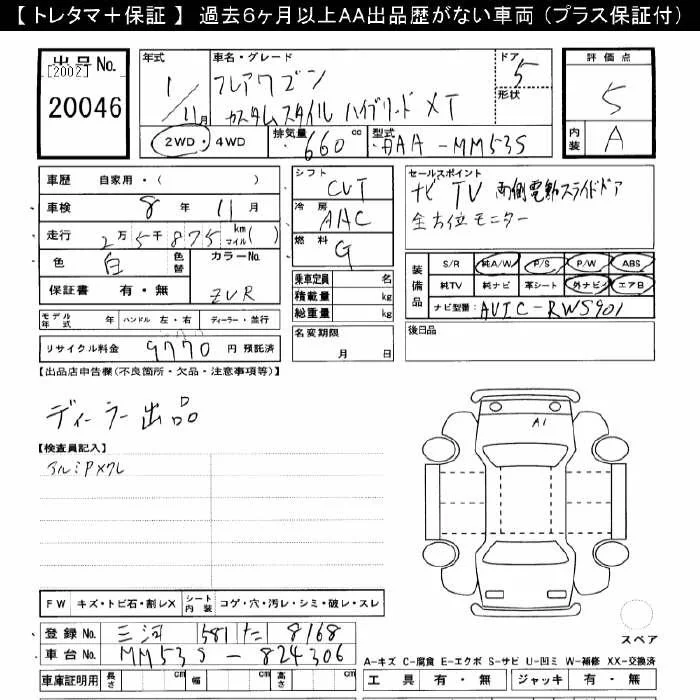 【 トレタマ＋保証 】 過去6ヶ月以上AA出品歴がない車両 (プラス保証付)
出品No. [2002] 20046
年式 1/11月
車名・グレード フレアワゴン カスタムスタイル ハイブリッド XT
ドア 5 形状
評価点 5
内装 A
2WD・4WD 排気量 660 cc 型式 AAA-MM53S
車歴 自家用・( )
車検 8年 11月
走行 2万5千875 km マイル( )
色 白 色替 カラーNo. ZVR
保証書 有・無
シフト CVT
冷房 AAC
燃料 G
乗車定員 名
積載量 kg
総重量 kg
セールスポイント
ナビ TV 両側電動スライドドア
全方位モニター
装備品 S/R 純A/W P/S P/W ABS
純TV 純ナビ 革シート 外ナビ エアB
ナビ型番: AVIC-RW5901
モデル年式 年 ハンドル 左・右 ディーラー・並行
名変期限 月 日
後日品
リサイクル料金 9770 円 預託済
【出品店申告欄(不良箇所・欠品・注意事項等)】
ディーラー出品
A1
【検査員記入】
FW キズ・トビ石・割レX シート内装 コゲ・穴・汚レ・シミ・破レ・スレ
登録No. 三河 581 た 8168
スペア
車台No. MM53S-824306
A-キズ C-腐食 E-エクボ S-サビ U-凹ミ W-補修 XX-交換済
車庫証明用 長さ cm 幅 cm 高さ cm 工具 有・無 ジャッキ 有・無